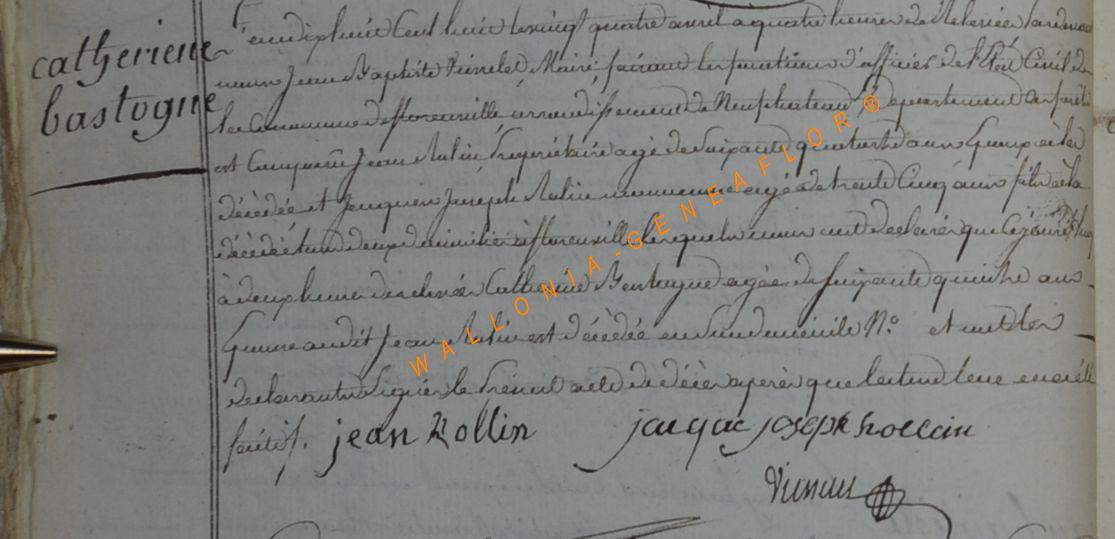 catherienne
bastogne
L'an dix huit Cent huit le vingt quatre avril à quatre heures de Relevée pardevant
nous Jean Baptiste Maire faisant les fonctions d'officier de l'État Civil de
la Commune de florenville arrondissement de Neufchateau Département des forêts
est Comparu Jean Rolin Propriétaire agé de soixante quatorze ans Epoux à la
décédée et Jacques Joseph Rolin agé de trente Cinq ans fils à la
décédée tous deux domiciliés à florenville lesquels nous ont déclaré que
à deux heures de relevée Catherine Bastogne agée de soixante quinze ans
femme audit Jean Rolin est décédée en Son domicile N.° et ont les
declarants Signés le Présent acte de décès après que lecture leur en a été
faite.
jean Rollin
jacque joseph rollin
WALLONIA-GENEAFLOR®